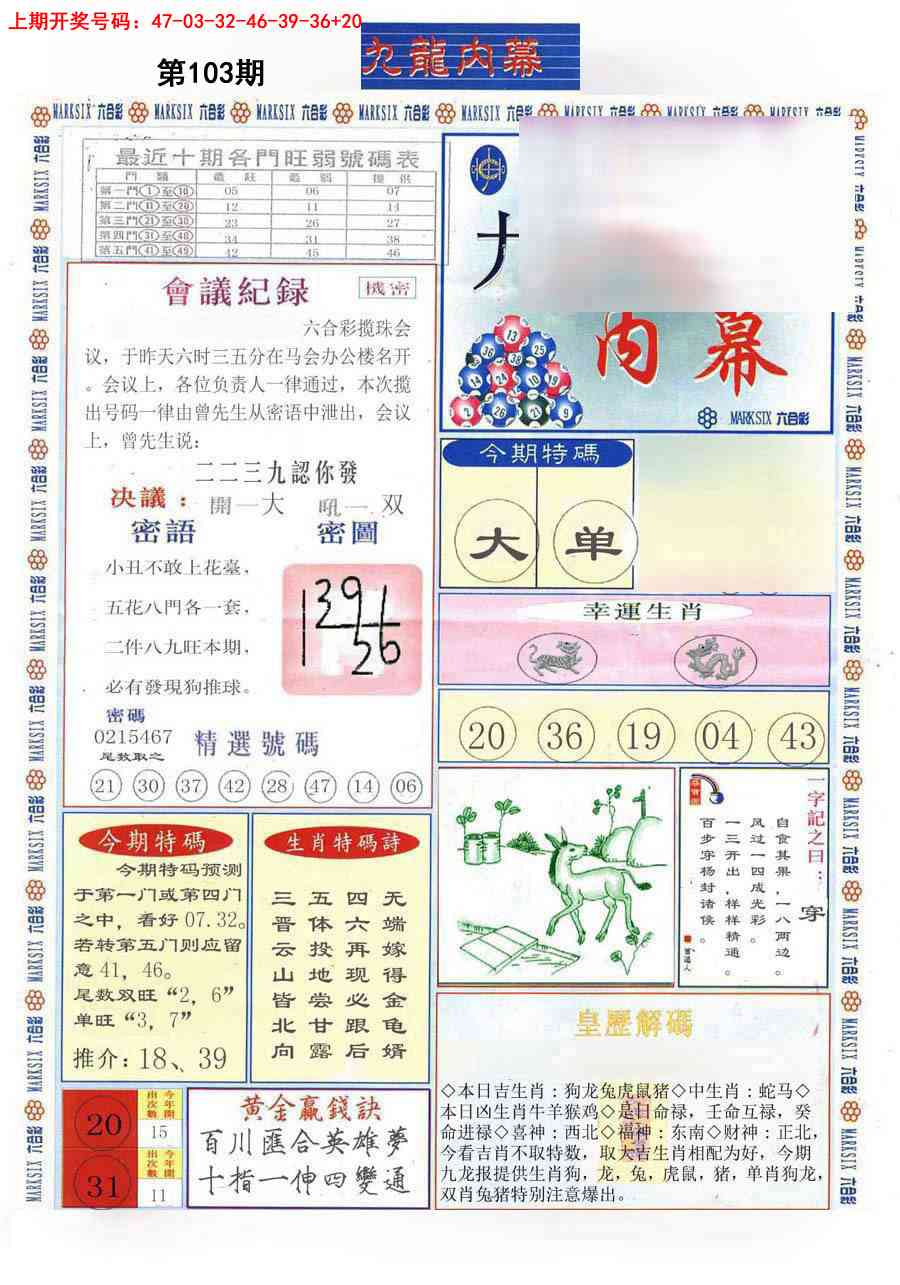 上期开奖号码：47-03-32-46-39-36+20
第103期
九龍内幕
MARKSIX 六合彩 MARKSIX 六合彩 MARKSIX 六合彩 MARKSIX 六合彩 MARKSIX 六合彩 MARKSIX 六合彩 MARKSIX 六合彩 MARKSIX 六合彩
最近十期各門旺弱號碼表
門類 最旺 最弱 提供
第一門①至⑩ 05 06 07
第二門⑪至⑳ 12 11 14
第三門㉑至㉚ 23 26 27
第四門㉛至㊵ 34 31 38
第五門㊶至㊾ 42 45 46
會議紀録
機密
六合彩揽珠会
议，于昨天六时三五分在马会办公楼名开
。会议上，各位负责人一律通过，本次揽
出号码一律由曾先生从密语中泄出，会议
上，曾先生说：
二二三九認你發
决議：開一大 吼一双
密語
密圖
小丑不敢上花臺，
五花八門各一套，
二件八九旺本期，
必有發現狗推球。
密碼
0215467
尾数取之
精選號碼
21 30 37 42 28 47 14 06
内幕
13
36 38 25
14 24 10 19
2 26 21 9
MARKSIX 六合彩
今期特碼
大 单
幸運生肖
20 36 19 04 43
一字記之曰：穿
自食其果，一八两边。
风过一四成光彩。
一三开出，样样精通。
百步穿杨封诸侯。
今期特碼
今期特码预测
于第一门或第四门
之中，看好 07.32。
若转第五门则应留
意 41，46。
尾数双旺“2，6”
单旺“3，7”
推介：18、39
生肖特碼詩
三晋云山皆北向
五体投地尝甘露
四六再现必跟后
无端嫁得金龟婿
20
今年開出次數
15
31
今年開出次數
11
黄金贏錢訣
百川匯合英雄夢
十指一伸四變通
皇歷解碼
◇本日吉生肖：狗龙兔虎鼠猪◇中生肖：蛇马◇
本日凶生肖牛羊猴鸡◇是日命禄，壬命互禄，癸
命进禄◇喜神：西北◇福神：东南◇财神：正北，
今看吉肖不取特数，取大吉生肖相配为好，今期
九龙报提供生肖狗，龙，兔，虎鼠，猪，单肖狗龙，
双肖兔猪特别注意爆出。